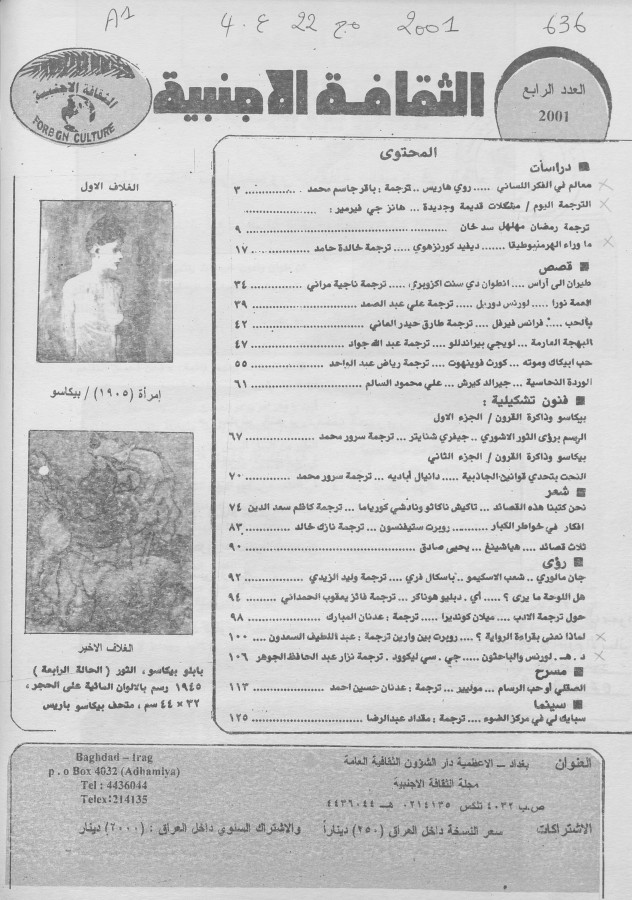 A1
4 . ع 22 م.ج 2001
636
الثقافة الاجنبية
FOREIGN CULTURE
الثقافة الاجنبية
العدد الرابع
2001
المحتوى
دراسات
معالم في الفكر اللساني ..... روي هاريس .. ترجمة : باقر جاسم محمد ٣
الترجمة اليوم / مشكلات قديمة وجديدة ... هانز جي فيرمير :
ترجمة رمضان مهلهل سدخان ٩
ما وراء الهرمنيوطيقا ....... ديفيد كوزنزهوي ..... ترجمة خالدة حامد ١٧
قصص
طيران الى آراس .... انطوان دي سنت اكزوبري ..... ترجمة ناجية مراني ٣٤
العمة نورا ..... لورنس دوريل ..... ترجمة علي عبد الصمد ٣٩
يالحب ..... فرانس فيرفل .... ترجمة طارق حيدر العاني ٤٢
البهجة العارمة ... لويجي بيراندللو .... ترجمة عبد الله جواد ٤٧
حب ابيكاك وموته ... كورت فوينهوت .... ترجمة رياض عبد الواحد ٥٥
الوردة النحاسية ... جيرالد كيرش ... علي محمود السالم ٦١
فنون تشكيلية :
بيكاسو وذاكرة القرون / الجزء الاول
الرسم برؤى الثور الاشوري .. جيفري شنايتر ... ترجمة سرور محمد ٦٧
بيكاسو وذاكرة القرون / الجزء الثاني
النحت بتحدي قوانين الجاذبية ..... دانيال أباديه ... ترجمة سرور محمد ٧٠
شعر
نحن كتبنا هذه القصائد ... تاكيش ناكاثو ونادشي كورياما ... ترجمة كاظم سعد الدين ٧٤
افكار في خواطر الكبار .......... روبرت ستيفنسون ... ترجمة نازك خالد ٨٣
ثلاث قصائد .... هياشينغ ... يحيى صادق ٩٠
رؤى
جان مالوري .. شعب الاسكيمو .. باسكال فري .... ترجمة وليد الزيدي ٩٢
هل اللوحة ما يرى ؟ ..... أي . دبليو هوناكر ... ترجمة فائز يعقوب الحمداني ٩٤
حول ترجمة الادب .... ميلان كونديرا .... ترجمة : عدنان المبارك ٩٨
لماذا نعنى بقراءة الرواية ؟ .... روبرت بين وارين ترجمة : عبد اللطيف السعدون ١٠٠
د . هـ . لورنس والباحثون ..... جي . سي ليكوود . ترجمة نزار عبد الحافظ الجوهر ١٠٦
مسرح
الصقلي أو حب الرسام .... موليير ... ترجمة : عدنان حسين احمد ١١٣
سينما
سبايك لي في مركز الضوء .... ترجمة : مقداد عبدالرضا ١٢٥
الغلاف الاول
إمرأة (١٩٠٥) / بيكاسو
الغلاف الاخير
بابلو بيكاسو ، الثور ( الحالة الرابعة )
١٩٤٥ رسم بالالوان المائية على الحجر ،
٣٢ × ٤٤ سم ، متحف بيكاسو باريس
العنوان بغداد – الاعظمية دار الشؤون الثقافية العامة
مجلة الثقافة الاجنبية
ص.ب ٤٠٣٢ تلكس ٠٢١٤١٣٥ هـ ٤٤٣٦٠٤٤
الاشتراكات سعر النسخة داخل العراق (٢٥٠) ديناراً والاشتراك السنوي داخل العراق : (٢٠٠٠) دينار
Baghdad – Iraq
p . o Box 4032 (Adhamiya)
Tel : 4436044
Telex:214135